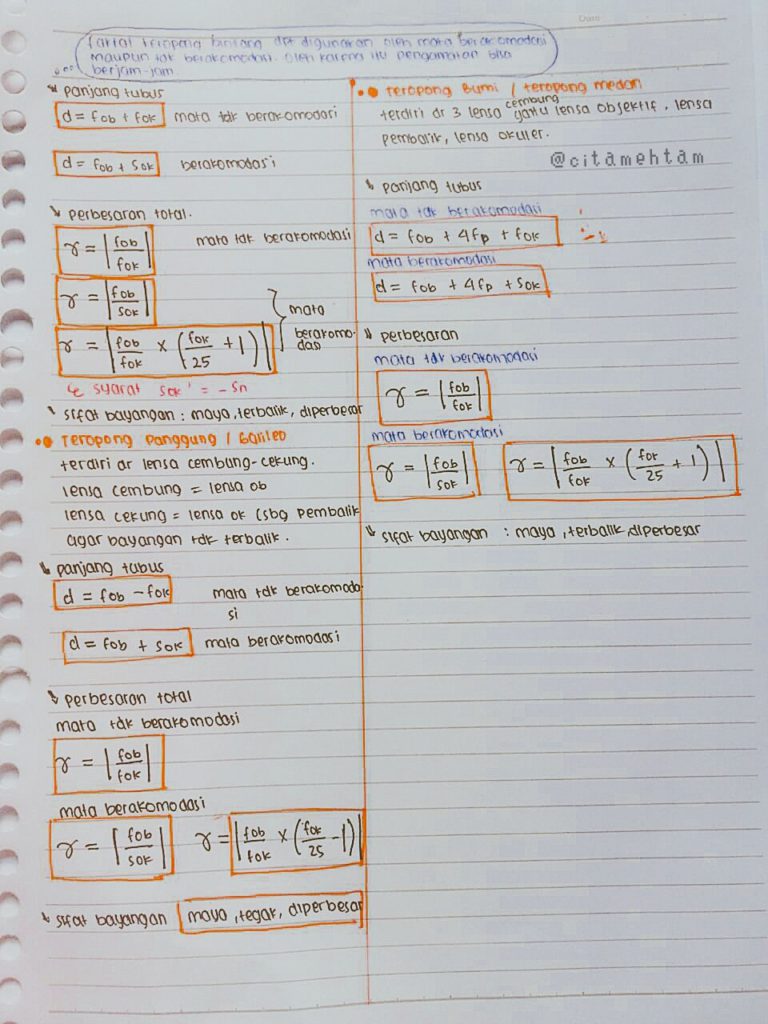 teropong bintang dpt digunakan oleh mata berakomodasi
maupun tdk berakomodasi. oleh karena itu pengamatan bisa
berjam-jam
panjang tubus
d = fob + fok mata tdk berakomodasi
d = fob + sok berakomodasi
perbesaran total.
γ = |fob/fok| mata tdk berakomodasi
γ = |fob/sok|
γ = |fob/fok × (fok/25 + 1)| mata berakomodasi
syarat sok' = -sn
sifat bayangan : maya, terbalik, diperbesar
Teropong Panggung / Galileo
terdiri dr lensa cembung-cekung.
lensa cembung = lensa ob
lensa cekung = lensa ok (sbg pembalik
agar bayangan tdk terbalik.
panjang tubus
d = fob - fok mata tdk berakomoda-
si
d = fob + sok mata berakomodasi
perbesaran total
mata tdk berakomodasi
γ = |fob/fok|
mata berakomodasi
γ = |fob/sok| γ = |fob/fok × (fok/25 - 1)|
sifat bayangan maya, tegak, diperbesar
Teropong Bumi / teropong medan
terdiri dr 3 lensa cembung yaitu lensa objektif, lensa
pembalik, lensa okuler.
@citamehtam
panjang tubus
mata tdk berakomodasi
d = fob + 4fp + fok
mata berakomodasi
d = fob + 4fp + sok
perbesaran
mata tdk berakomodasi
γ = |fob/fok|
mata berakomodasi
γ = |fob/sok| γ = |fob/fok × (fok/25 + 1)|
sifat bayangan : maya, terbalik, diperbesar